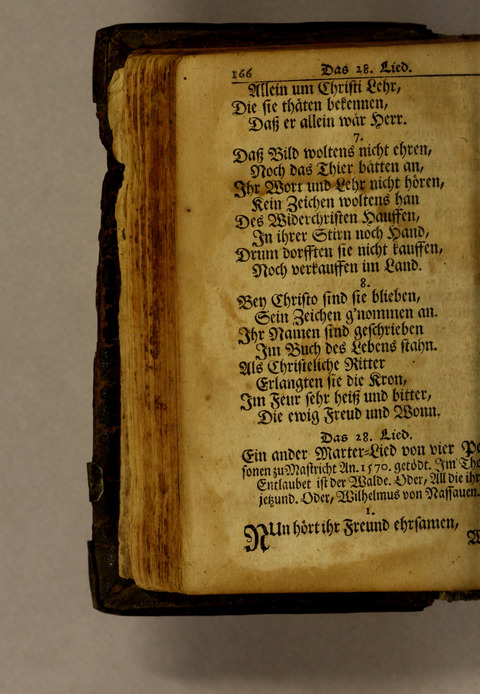 166 Das 28. Lied.
Allein um Christi Lehr,
Die sie thäten bekennen,
Daß er allein wär Herr.
7.
Daß Bild woltens nicht ehren,
Noch das Thier bätten an,
Ihr Wort und Lehr nicht hören,
Kein Zeichen woltens han
Des Widerchristen Hauffen,
In ihrer Stirn noch Hand,
Drum dorfften sie nicht kauffen,
Noch verkauffen im Land.
8.
Bey Christo sind sie blieben,
Sein Zeichen g'nommen an.
Ihr Namen sind geschrieben
Im Buch des Lebens stahn.
Als Christeliche Ritter
Erlangten sie die Kron,
Im Feur sehr heiß und bitter,
Die ewig Freud und Wonn.
Das 28. Lied.
Ein ander Marter-Lied von vier
sonen zu Mastricht An. 1570. getödt. Im
Entlaubet ist der Walde. Oder, All die ihr
jetzund. Oder, Wilhelmus von Nassauen.
1.
NUn hört ihr Freund ehrsamen,